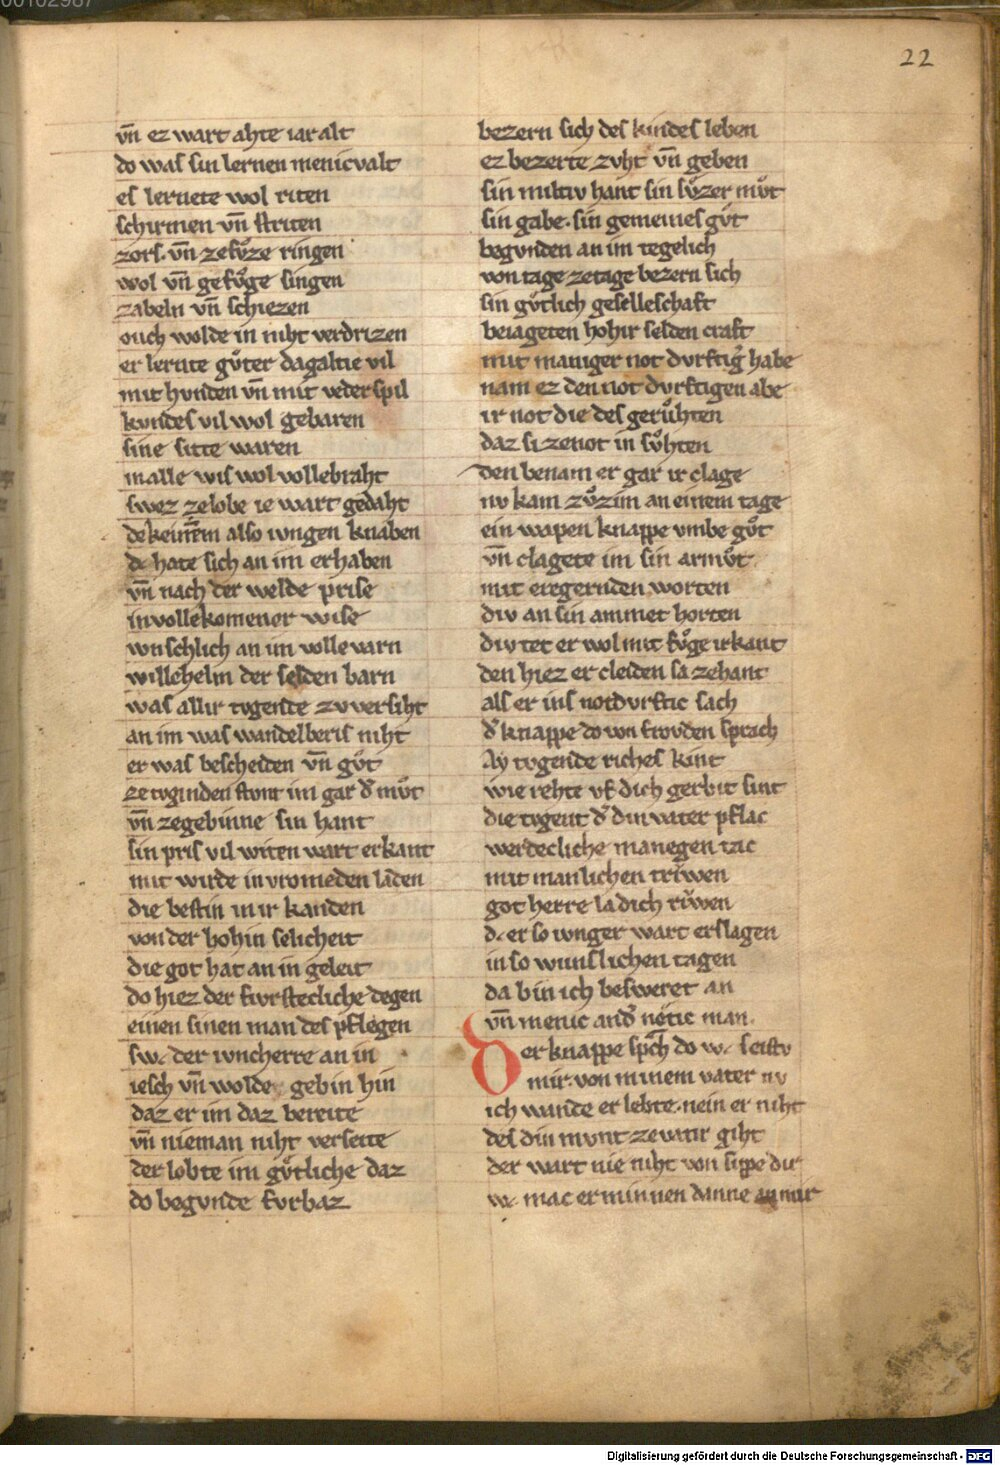 22
vn̄ ez wart ahte iar alt
do was sin lernen menicvalt
es lernete wol riten
schirmen vn̄ striten
zors. vn̄ zefvͦze ringen
wol vn̄ gefvͦge singen
zabeln vn̄ schiezen
ouch wolde in niht verdrizen
er lernte gvͦter dagaltie vil
mit hvnden vn̄ mit vederspil
kvndes vil wol gebaren
sine sitte waren
in alle wis wol vollebraht
swez zelobe ie wart gedaht
also ivngen knaben
dc hate sich an im erhaben
vn̄ nach der welde prise
in vollekomener wise
wnschlich an im vollevarn
willehelm der selden barn
was allir tvgende zvversiht
an im was wandelberis niht
er was bescheiden vn̄ gvͦt
zetvginden stvnt im gar dˀ mvͦt
vn̄ zegebinne sin hant
sin pris vil witen wart erkant
mit wirde in vromeden landen
die bestin in ir kanden
von der hohin selicheit
die got hat an in geleit
do hiez der fvrstecliche degen
einen sinen man des pflegen
swc der ivncherre an in
iesch vn̄ wolde gebin hin
daz er im daz bereite
vn̄ nieman niht verseite
der lobte im gvͤtliche daz
do begvnde fvrbaz
bezern sich des kindes leben
ez bezerte zvht vn̄ geben
sin miltiv hant sin svͤzer mvͦt
sin gabe. sin gemeines gvͦt
begvnden an im tegelich
von tage zetage bezern sich
sin gvͤtlich geselleschaft
beiageten hohir selden craft
mit maniger not dvrftigˀ habe
nam ez den not dvrftigen abe
ir not die des gervͦhten
daz si zenot in svͦhten
den benam er gar ir clage
nv kam zvͦzim an einem tage
ein wapen knappe vmbe gvͦt
vn̄ clagete im sin armvͦt
mit eregernden worten
div an sin ammet horten
div tet er wol mit fvͦge irkant
den hiez er cleiden sa zehant
als er ins notdvrftic sach
dˀ knappe do von frovden sprach
Ay tvgende riches kint
wie rehte vf dich gerbit sint
die tvgent dˀ din vater pflac
werdecliche manegen tac
mit manlichen trv̓wen
got herre la dich rv̓wen
dc er so ivnger wart erslagen
in so wunslichen tagen
da bin ich besweret an
vn̄ menic andˀ nötic man.
Der knappe spͣch do wc seistv
mir. von minem vater nv
ich wande er lebte. nein er niht
des din mvnt zevatir giht
der wart nie niht von sippe dir
wc mac er minnen danne an mir
Digitalisierung gefördert durch die Deutsche Forschungsgemeinschaft - DFG